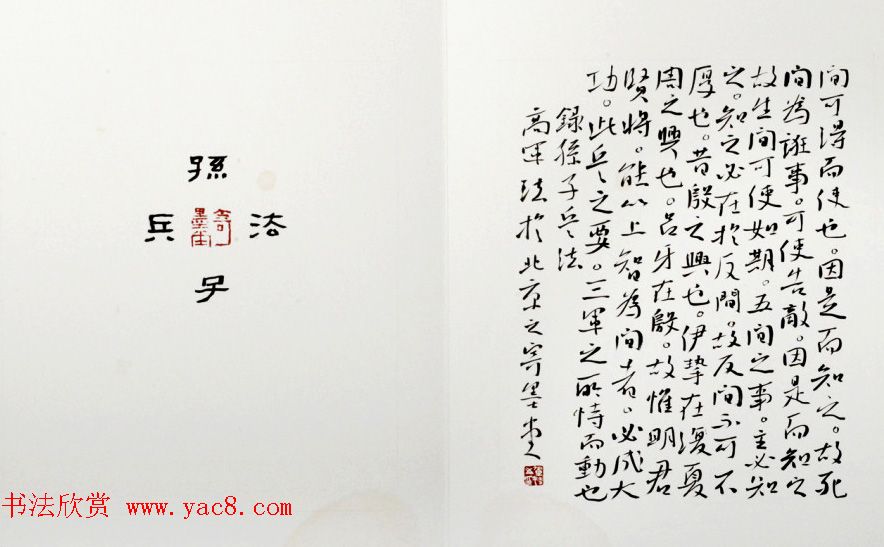 間可得而使也。因是而知之。故死
間為誑事。可使告敵。因是而知之
故生間可使如期。五間之事。主必知
之。知之必在於反間。故反間不可不
厚也。昔殷之興也。伊摯在夏
周之興也。呂牙在殷。故惟明君
賢將。能以上智為間者。必成大
功。此兵之要。三軍之所恃而動也
錄孫子兵法
高軍法於北京之寄墨堂
孫
兵 法
子
书法欣赏 www.yac8.com